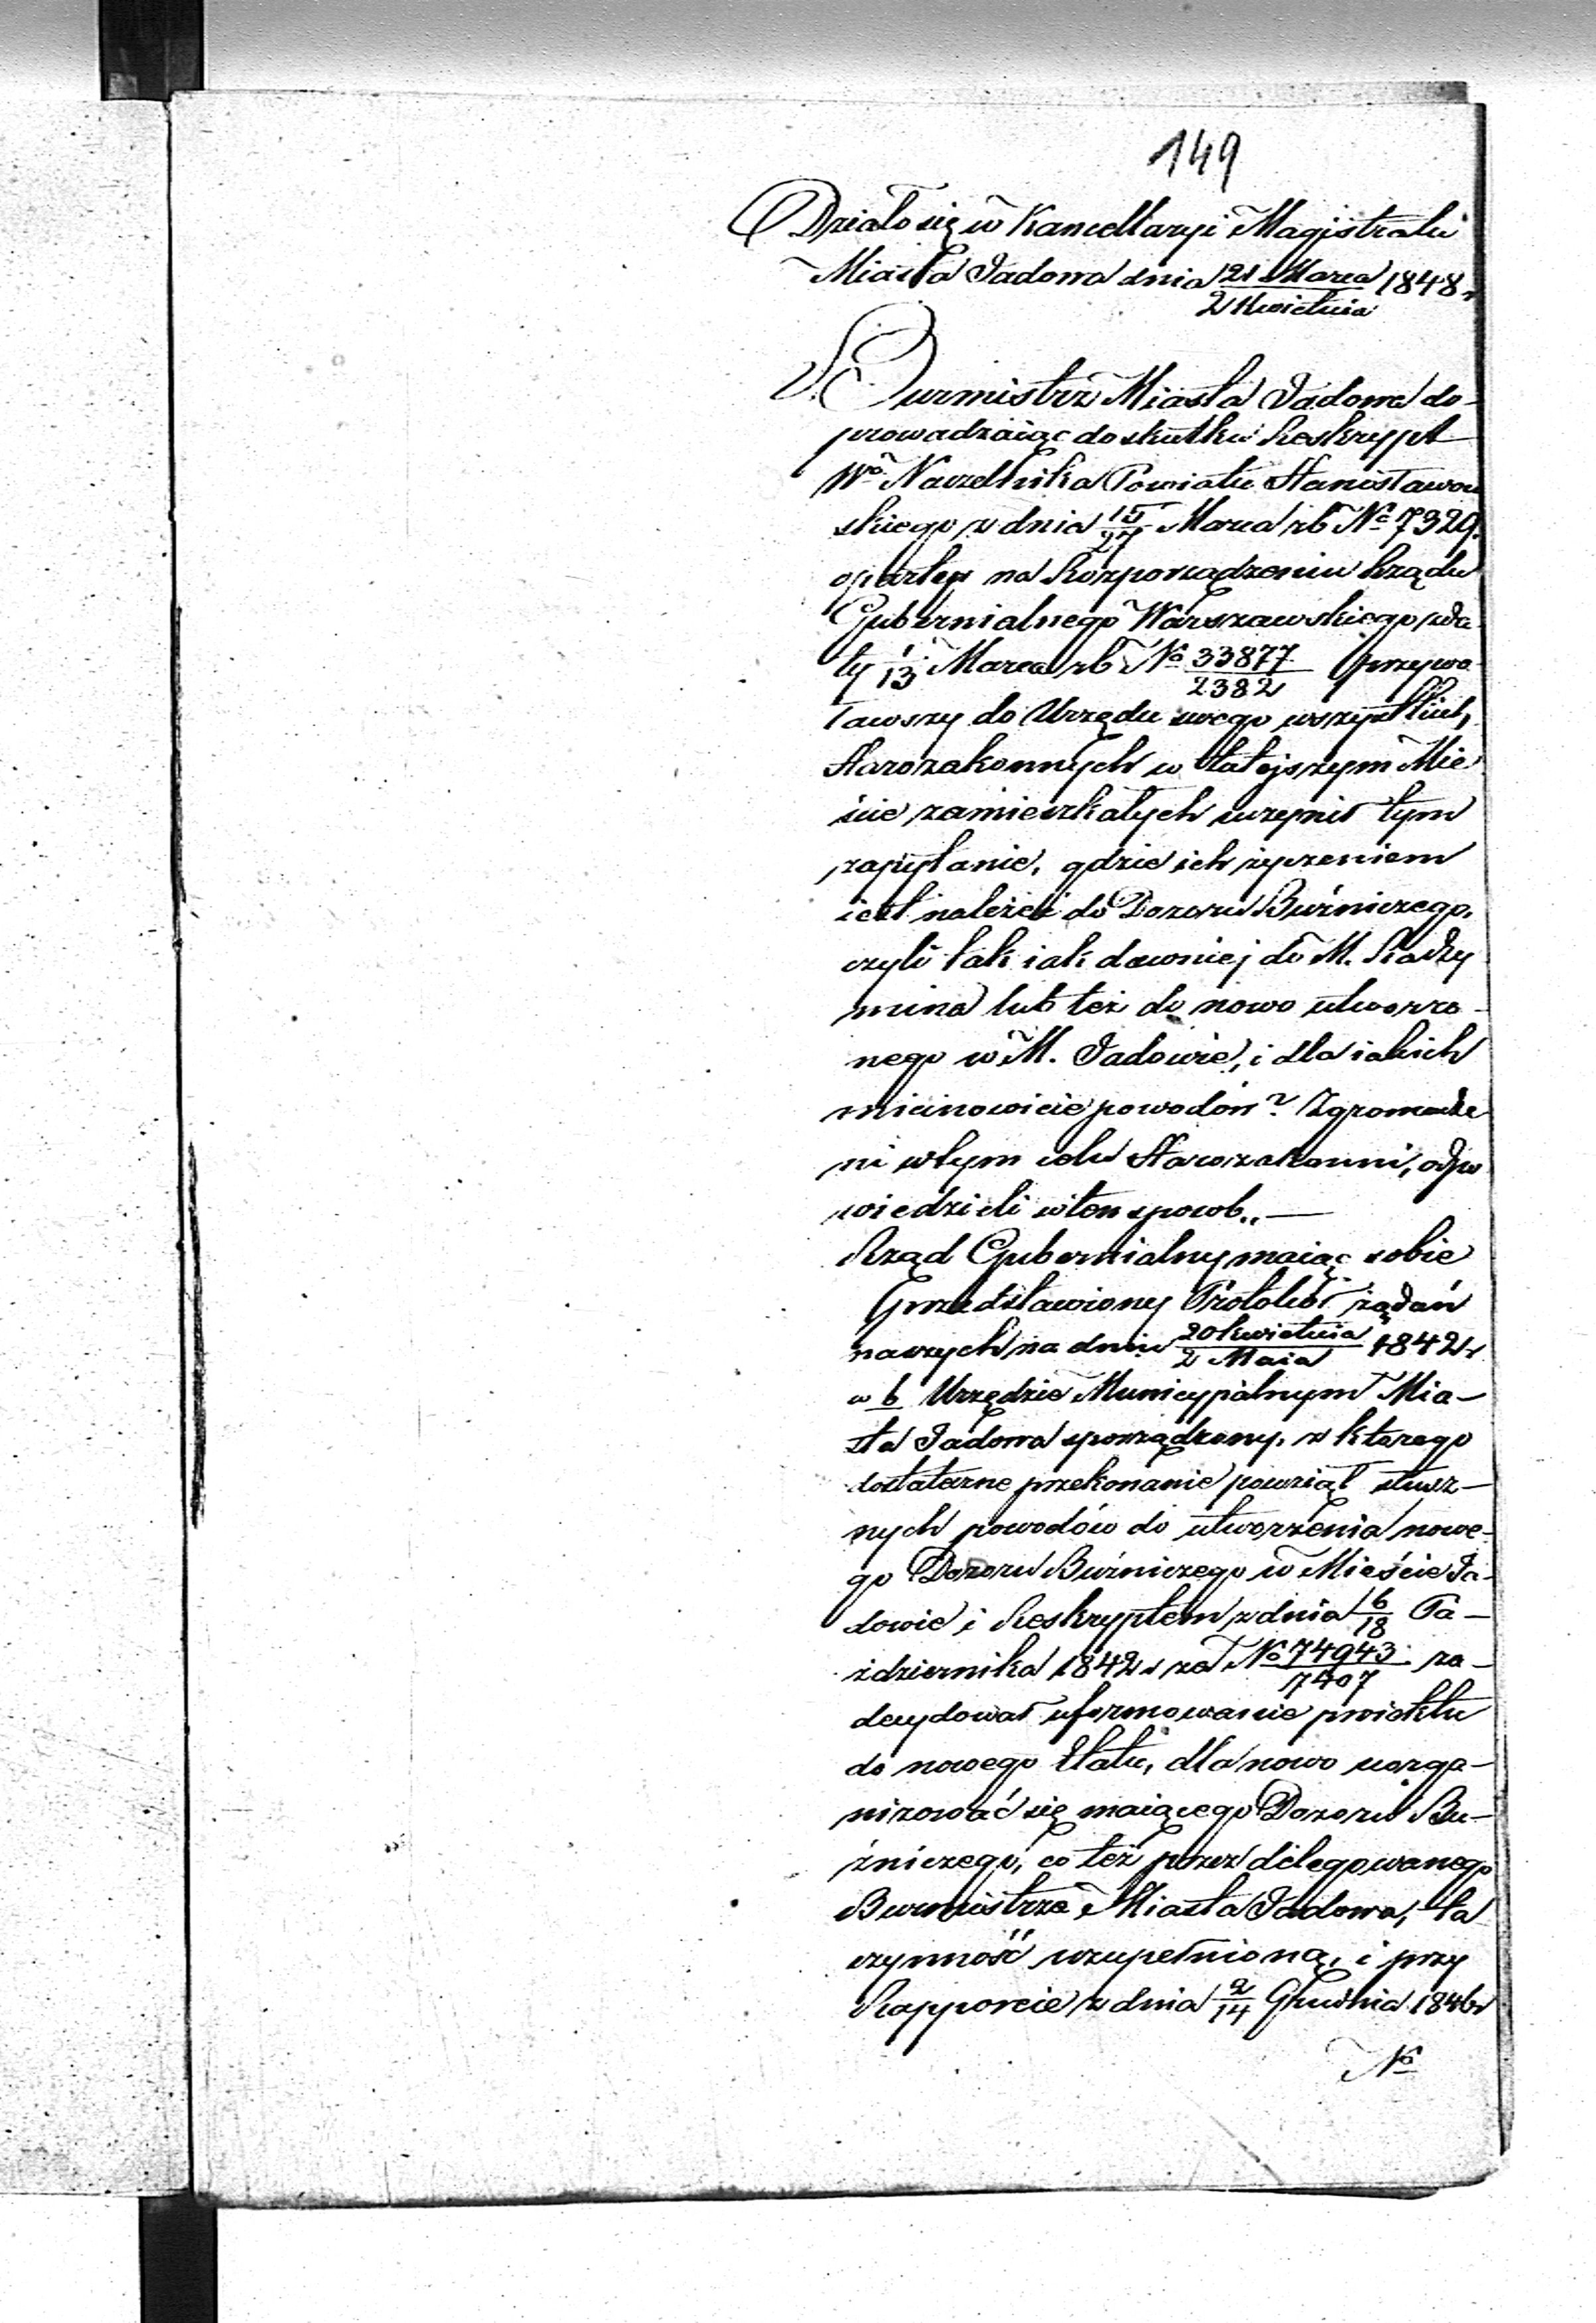 149
Działo się w Kancellaryi Magistratu
Miasta Jadowa dnia 21 Marca / 2 Kwietnia 1848 r
Burmistrz Miasta Jadowa do-
prowadzaiąc do skutku Reskrypt
Wo Naczelnika Powiatu Stanisławow
skiego z dnia 15/27 Marca rb No 7329.
oparty na Rozporządzeniu Rządu
Gubernialnego Warszawskiego z da
ty 1/13 Marca rb No 33877/2382 przywo
ławszy do Urzędu swego wszystkich
Starozakonnych w tutejszym Mie
ście zamieszkałych uczynił tym
zapytanie, gdzie ich życzeniem
iest należeć do Dozoru Bużniczego,
czyli tak iak dawniej do M. Radzy
mina lub też do nowo utworzo-
nego w M. Jadowie, i dla iakich
mianowicie powodów? Zgromadze
ni w tym celu Starozakonni, odpo
wiedzieli w ten sposób.. —
Rząd Gubernialny maiąc sobie
przedstawiony Protokół żądań
naszych na dniu 20 Kwietnia / 2 Maia 1842 r
w b Urzędzie Municypalnym Mia-
sta Jadowa sporządzony, z którego
dostateczne przekonanie powziął słusz-
nych powodów do utworzenia nowe-
go Dozoru Bużniczego w Mieście Ja-
dowie i Reskryptem z dnia 6/18 Pa-
ździernika 1842 r za No 74943/7407 za-
decydował uformowanie proiektu
do nowego Etatu, dla nowo uorga-
nizować się maiącego Dozoru Bu-
żniczego, co też przez delegowanego
Burmistrza Miasta Jadowa, ta
czynność uzupełnioną, i przy
Rapporcie z dnia 2/14 Grudnia 1846 r
No